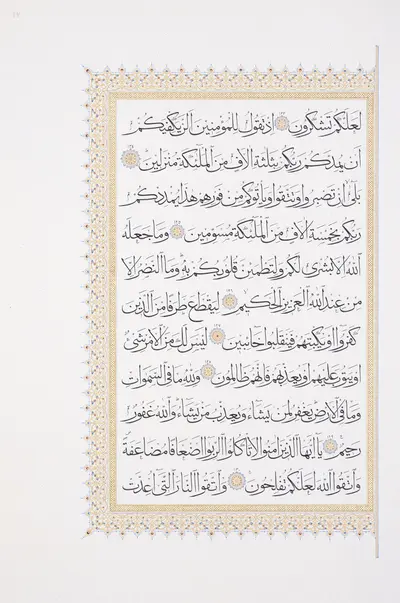 لعلكم تشكرون إذ تقول للمؤمنين ألن يكفيكم
أن يمدكم ربكم بثلثة الاف من الملئكة منزلين
بلى إن تصبروا وتتقوا ويأتوكم من فورهم هذا يمددكم
ربكم بخمسة الاف من الملئكة مسومين وما جعله
الله الا بشرى لكم ولتطمئن قلوبكم به وما النصر الا
من عند الله العزيز الحكيم ليقطع طرفا من الذين
كفروا أو يكبتهم فينقلبوا خائبين ليس لك من الامر شئ
أو يتوب عليهم أو يعذبهم فانهم ظالمون ولله ما في السموات
وما في الارض يغفر لمن يشاء ويعذب من يشاء والله غفور
رحيم يا أيها الذين امنوا لا تأكلوا الربوا أضعافا مضاعفة
واتقوا الله لعلكم تفلحون واتقوا النار التي أعدت